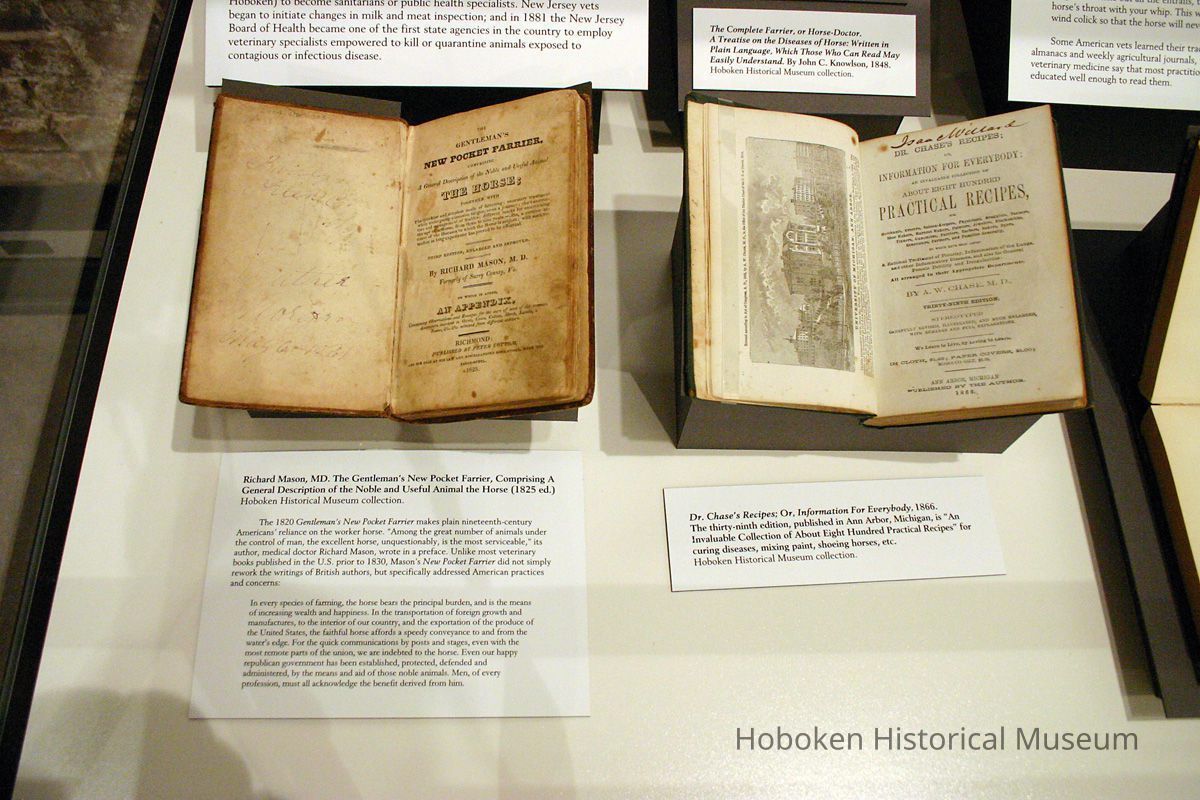 Hoboken) to become sanitarians or public health specialists. New Jersey vets
began to initiate changes in milk and meat inspection; and in 1881 the New Jersey
Board of Health became one of the first state agencies in the country to employ
veterinary specialists empowered to kill or quarantine animals exposed to
contagious or infectious disease.
The Complete Farrier, or Horse-Doctor.
A Treatise on the Diseases of Horse: Written in
Plain Language, Which Those Who Can Read May
Easily Understand. By John C. Knowlson, 1848.
Hoboken Historical Museum collection.
horse's throat with your whip. This w
wind colick so that the horse will neve
Some American vets learned their tra
almanacs and weekly agricultural journals,
veterinary medicine say that most practitio
educated well enough to read them.
THE
GENTLEMAN'S
NEW POCKET FARRIER,
COMPRISING
A General Description of the Noble and Useful Animal
THE HORSE;
TOGETHER WITH
THIRD EDITION, ENLARGED AND IMPROVED.
By RICHARD MASON, M. D.
Formerly of Surry County, Va.
TO WHICH IS ADDED,
AN APPENDIX,
RICHMOND:
PUBLISHED BY PETER COTTOM,
1825.
Isaac Willard
DR. CHASE'S RECIPES;
OR,
INFORMATION FOR EVERYBODY:
AN INVALUABLE COLLECTION OF
ABOUT EIGHT HUNDRED
PRACTICAL RECIPES,
FOR
A Rational Treatment of Pleurisy, Inflammation of the Lungs,
and other Inflammatory Diseases, and also for General
Female Debility and Irregularities:
All arranged in their Appropriate Departments.
BY A. W. CHASE, M. D.
THIRTY-NINTH EDITION.
STEREOTYPED
CAREFULLY REVISED, ILLUSTRATED, AND MUCH ENLARGED,
WITH REMARKS AND FULL EXPLANATIONS.
We Learn to Live, by Living to Learn.
ANN ARBOR, MICHIGAN
PUBLISHED BY THE AUTHOR.
1866.
Richard Mason, MD. The Gentleman's New Pocket Farrier, Comprising A
General Description of the Noble and Useful Animal the Horse (1825 ed.)
Hoboken Historical Museum collection.
The 1820 Gentleman's New Pocket Farrier makes plain nineteenth-century
Americans' reliance on the worker horse. "Among the great number of animals under
the control of man, the excellent horse, unquestionably, is the most serviceable," its
author, medical doctor Richard Mason, wrote in a preface. Unlike most veterinary
books published in the U.S. prior to 1830, Mason's New Pocket Farrier did not simply
rework the writings of British authors, but specifically addressed American practices
and concerns:
In every species of farming, the horse bears the principal burden, and is the means
of increasing wealth and happiness. In the transportation of foreign growth and
manufactures, to the interior of our country, and the exportation of the produce of
the United States, the faithful horse affords a speedy conveyance to and from the
water's edge. For the quick communications by posts and stages, even with the
most remote parts of the union, we are indebted to the horse. Even our happy
republican government has been established, protected, defended and
administered, by the means and aid of those noble animals. Men, of every
profession, must all acknowledge the benefit derived from him.
Dr. Chase's Recipes; Or, Information For Everybody, 1866.
The thirty-ninth edition, published in Ann Arbor, Michigan, is "An
Invaluable Collection of About Eight Hundred Practical Recipes" for
curing diseases, mixing paint, shoeing horses, etc.
Hoboken Historical Museum collection.
Hoboken Historical Museum